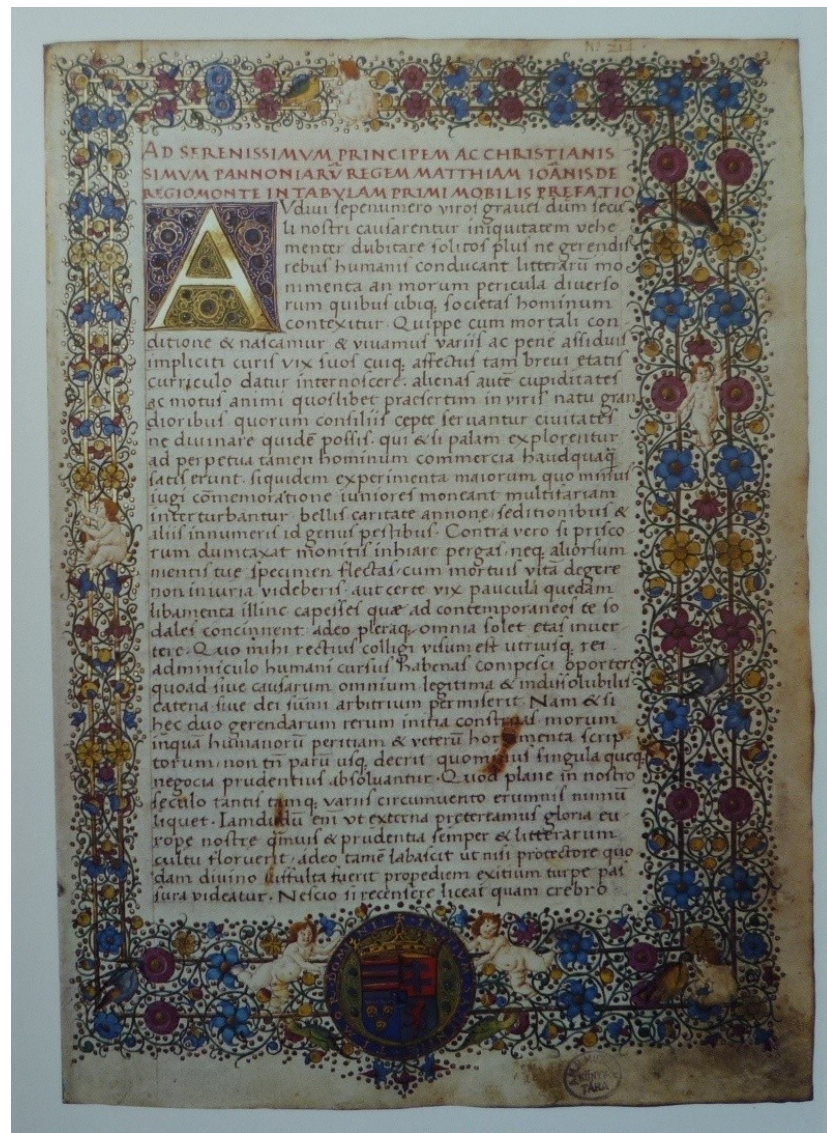 AD SERENISSIMVM PRINCIPEM AC CHRISTIANIS
SIMVM PANNONIARŪ REGEM MATTHIAM IOĀNIS DE
REGIOMONTE IN TABVLAM PRIMI MOBILIS PREFATIO
AVdiui sepenumero viros graues dum secu
li nostri causarentur iniquitatem vehe
menter dubitare solitos plus ne gerendis
rebus humanis conducant litterarū mo
nimenta an morum pericula diuerso
rum quibus ubiq; societas hominum
contexitur. Quippe cum mortali con
ditione & nascamur & viuamus variis ac pene assiduis
impliciti curis vix suos cuiq; affectus tam breui etatis
curriculo datur internoscere. alienas autē cupiditates
ac motus animi quoslibet praesertim in viris natu gran
dioribus quorum consiliis cepte seruantur ciuitates
ne diuinare quidē possis. qui & si palam explorentur
ad perpetua tamen hominum commercia haudquaq̄
satis erunt. siquidem experimenta maiorum quo minus
iugi cōmemoratione iuniores moneant multifariam
interturbantur. bellis caritate annone seditionibus &
aliis innumeris id genus pestibus. Contra vero si prisco
rum dumtaxat monitis inhiare pergas. neq; aliorsum
mentis tue specimen flectas. cum mortuis vitā degere
non iniuria videberis. aut certe vix paucula quedam
libamenta illinc capesses quæ ad contemporaneos te so
dales concinnent. adeo pleraq; omnia solet etas inuer
tere. Quo mihi rectius colligi visum est utriusq; rei
adminiculo humani cursus habenas compesci oportere
quoad siue causarum omnium legitima & indissolubilis
catena siue dei sūmi arbitrium permiserit. Nam & si
hec duo gerendarum rerum initia construas morum
inquā humanorū peritiam & veterū hortamenta scrip
torum. non tn̄ parū usq; deerit quominus singula queq;
negocia prudentius absoluantur. Quod plane in nostro
seculo tantis tamq; variis circumuento erumnis nimiū
liquet. Iamdudū eni vt externa pretereamus gloria eu
rope nostre qmuis & prudentia semper & litterarum
cultu floruerit. adeo tamē labascit ut nisi protectore quo
dam diuino suffulta fuerit propediem exitium turpe pas
sura videatur. Nescio si recensere liceat quam crebro